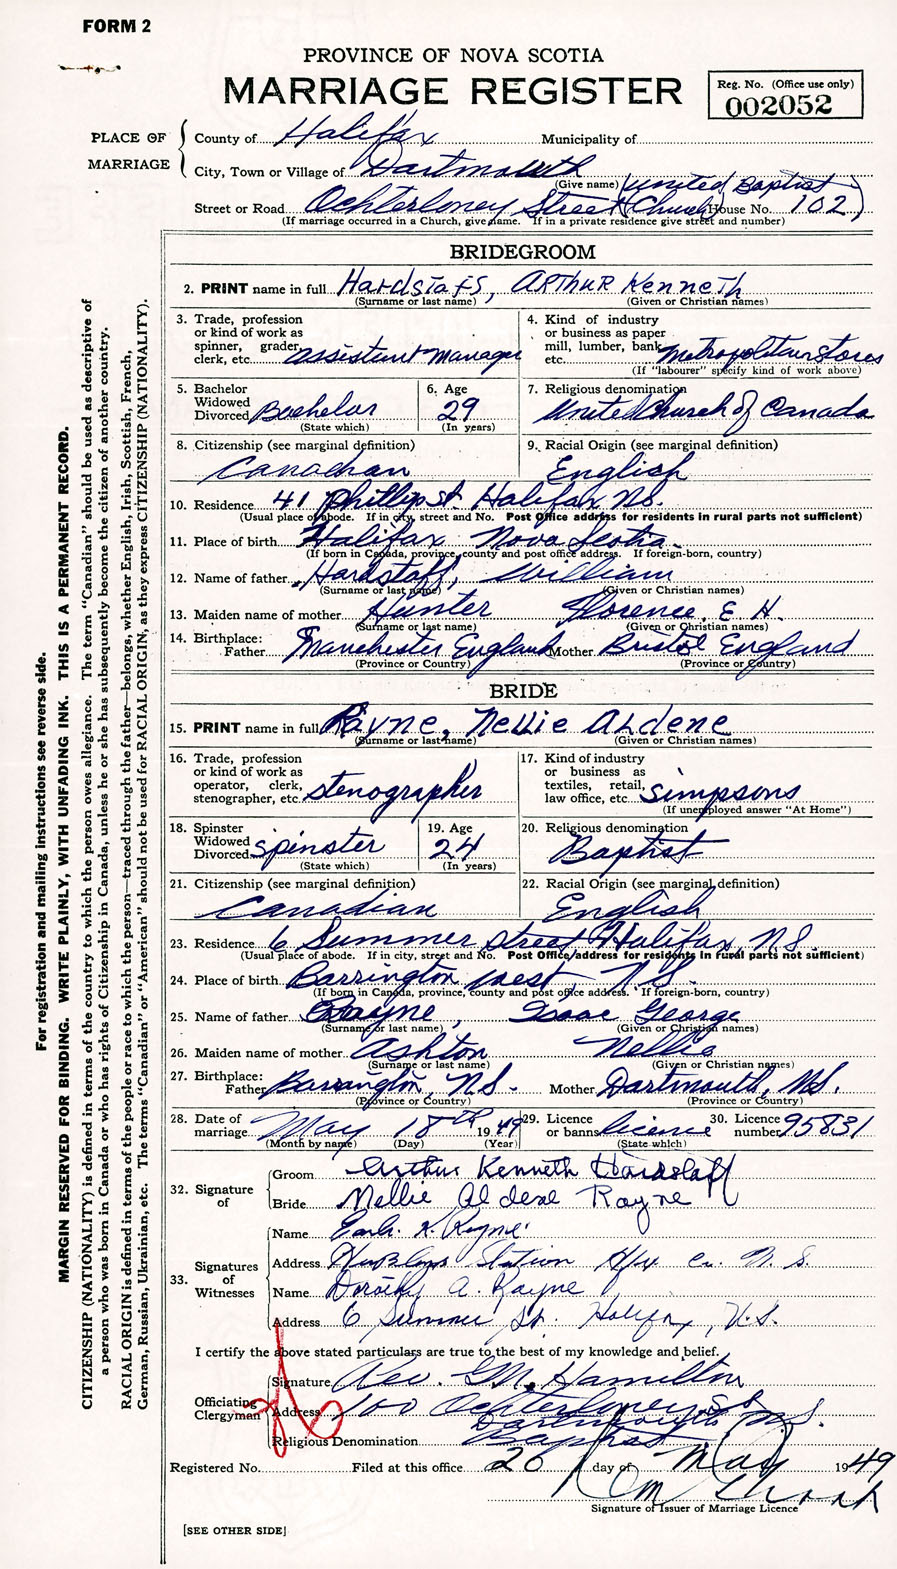 FORM 2
PROVINCE OF NOVA SCOTIA
MARRIAGE REGISTER
Reg. No. (Office use only)
002052
PLACE OF MARRIAGE
County of Halifax Municipality of
City, Town or Village of Dartmouth
(Give name) (United Baptist
Street or Road Ochterloney Street (Church) House No. 102)
(If marriage occurred in a Church, give name. If in a private residence give street and number)
BRIDEGROOM
2. PRINT name in full Hardstaff, ARTHUR Kenneth
(Surname or last name) (Given or Christian names)
3. Trade, profession or kind of work as spinner, grader, clerk, etc. assistant Manager
4. Kind of industry or business as paper mill, lumber, bank, etc. Metropolitan Stores
(If "labourer" specify kind of work above)
5. Bachelor Widowed Divorced Bachelor
(State which)
6. Age 29
(In years)
7. Religious denomination United Church of Canada
8. Citizenship (see marginal definition) Canadian
9. Racial Origin (see marginal definition) English
10. Residence 41 Phillip St. Halifax N.S.
(Usual place of abode. If in city, street and No. Post Office address for residents in rural parts not sufficient)
11. Place of birth Halifax Nova Scotia
(If born in Canada, province, county and post office address. If foreign-born, country)
12. Name of father Hardstaff, William
(Surname or last name) (Given or Christian names)
13. Maiden name of mother Hunter Florence, E. H.
(Surname or last name) (Given or Christian names)
14. Birthplace: Father Manchester England Mother Bristol England
(Province or Country) (Province or Country)
BRIDE
15. PRINT name in full Rayne, Nellie ALdene
(Surname or last name) (Given or Christian names)
16. Trade, profession or kind of work as operator, clerk, stenographer, etc. stenographer
17. Kind of industry or business as textiles, retail, law office, etc. simpsons
(If unemployed answer "At Home")
18. Spinster Widowed Divorced spinster
(State which)
19. Age 24
(In years)
20. Religious denomination Baptist
21. Citizenship (see marginal definition) Canadian
22. Racial Origin (see marginal definition) English
23. Residence 6 Summer street Halifax, N.S.
(Usual place of abode. If in city, street and No. Post Office address for residents in rural parts not sufficient)
24. Place of birth Barrington west, N.S.
(If born in Canada, province, county and post office address. If foreign-born, country)
25. Name of father Rayne, Isaac George
(Surname or last name) (Given or Christian names)
26. Maiden name of mother Ashton Nellie
(Surname or last name) (Given or Christian names)
27. Birthplace: Father Barrington, N.S. Mother Dartmouth, N.S.
(Province or Country) (Province or Country)
28. Date of marriage May 18th 1949
(Month by name) (Day) (Year)
29. Licence or banns licence
(State which)
30. Licence number 95831
32. Signature of
Groom Arthur Kenneth Hardstaff
Bride Nellie Aldene Rayne
33. Signatures of Witnesses
Name Earle K. Rayne
Address Hubbards Station Hfx Co. N. S.
Name Dorothy A. Rayne
Address 6 Summer St. Halifax, N.S.
I certify the above stated particulars are true to the best of my knowledge and belief.
Officiating Clergyman
Signature Rev. G.M. Hamilton
Address 100 Ochterloney St
Dartmouth N.S.
Religious Denomination Baptist
Registered No. Filed at this office 20 day of May 1949
Signature of Issuer of Marriage Licence
[SEE OTHER SIDE]
For registration and mailing instructions see reverse side.
MARGIN RESERVED FOR BINDING. WRITE PLAINLY, WITH UNFADING INK. THIS IS A PERMANENT RECORD.
CITIZENSHIP (NATIONALITY) is defined in terms of the country to which the person owes allegiance. The term "Canadian" should be used as descriptive of
a person who was born in Canada or who has rights of Citizenship in Canada, unless he or she has subsequently become the citizen of another country.
RACIAL ORIGIN is defined in terms of the people or race to which the person—traced through the father—belongs, whether English, Irish, Scottish, French,
German, Russian, Ukrainian, etc. The terms "Canadian" or "American" should not be used for RACIAL ORIGIN, as they express CITIZENSHIP (NATIONALITY).